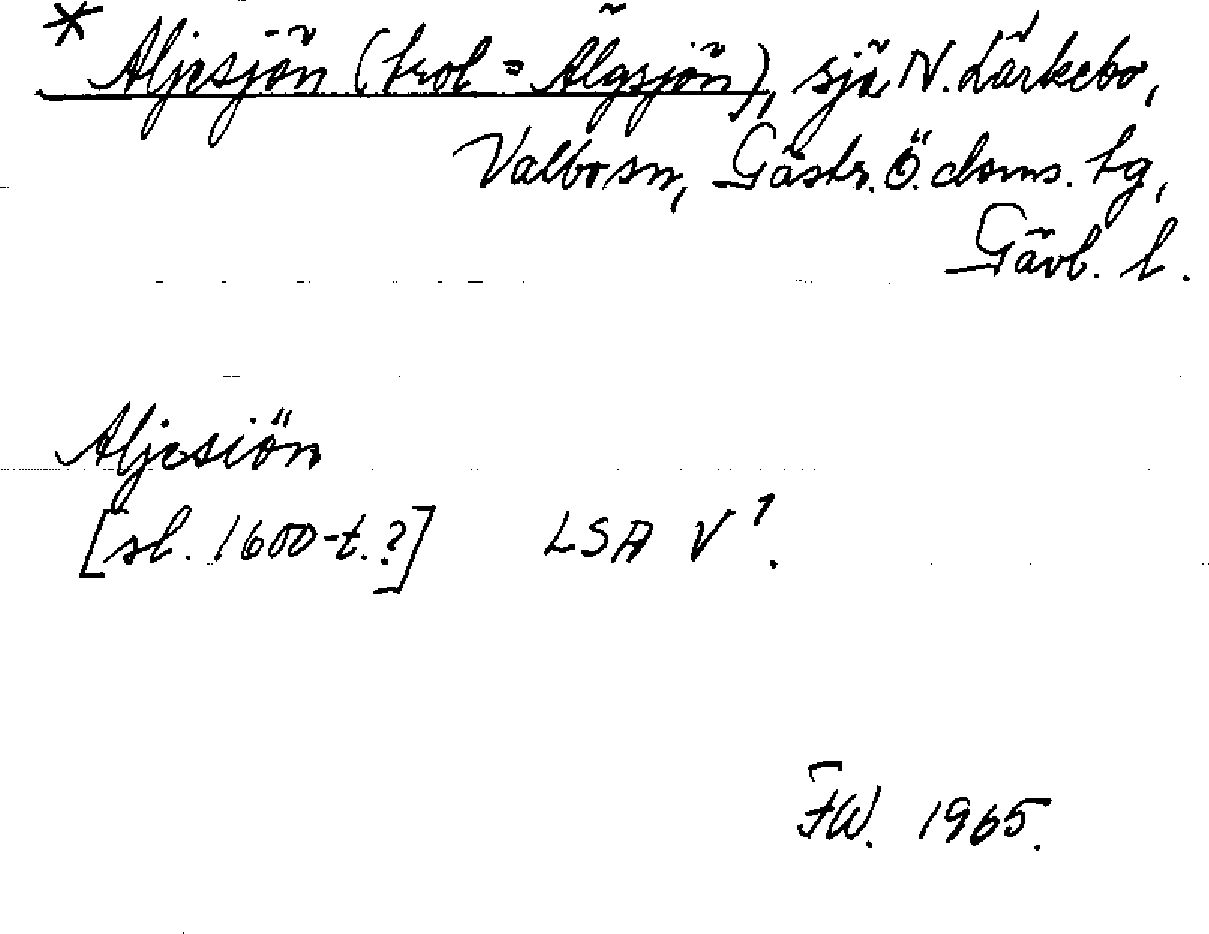 * Aljesjön (trol = Älgsjön), sjö N. Lärkebo,
Valbo sn, Gästr. Ö. doms. tg,
Gävl. l.
Aljesiön
[sl. 1600-t.?] LSA V¹.
FW. 1965.